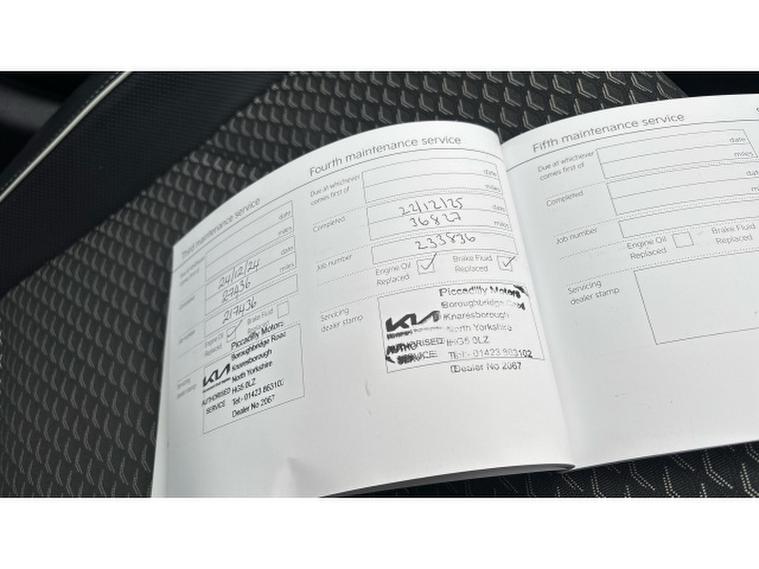 Third maintenance service
date
miles
Completed
24/12/24
date
27436
miles
217436
Engine Oil
Replaced
Brake Fluid
Piccadilly Motors
Boroughbridge Road
Knaresborough
North Yorkshire
HG5 0LZ
Tel:- 01423 863102
Dealer No 2067
KIA
AUTHORISED
SERVICE
Servicing
dealer stamp
Fourth maintenance service
Due at whichever
comes first of
date
miles
Completed
22/12/25
date
36827
miles
Job number
233836
Engine Oil
Replaced
Brake Fluid
Replaced
Servicing
dealer stamp
Piccadilly Motors
Boroughbridge Road
Knaresborough
North Yorkshire
HG5 0LZ
Tel:- 01423 863102
Dealer No 2067
KIA
AUTHORISED
SERVICE
Fifth maintenance service
Due at whichever
comes first of
date
miles
Completed
date
miles
Job number
Engine Oil
Replaced
Brake Fluid
Replaced
Servicing
dealer stamp